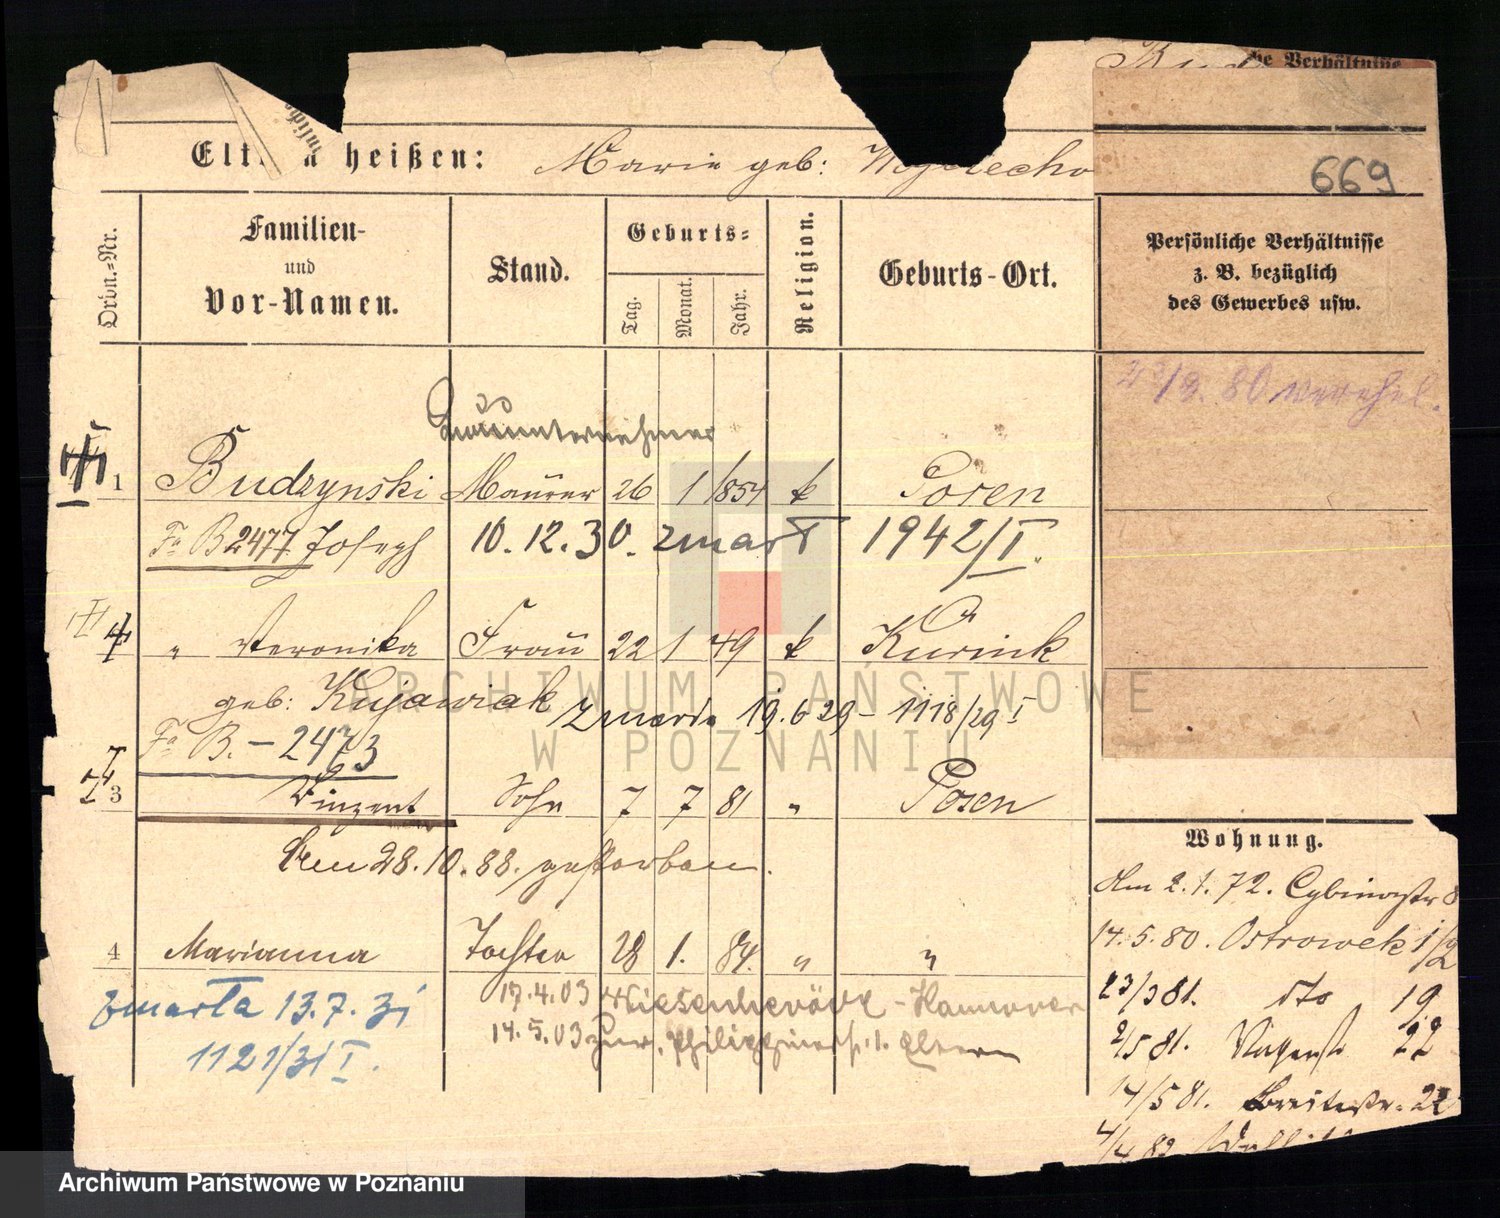 che Verhältnisse
Eltern heißen: Marie geb:
669
Ordn.-Nr.
Familien-
und
Vor-Namen.
Stand.
Geburts-
Tag.
Monat.
Jahr.
Religion.
Geburts-Ort.
Persönliche Verhältnisse
z. B. bezüglich
des Gewerbes usw.
23/9. 80 verehel.
Bauunternehmer
1 Budzynski Maurer 26 1 1854 k Posen
Fa B 2477 Joseph 10. 12. 30. zmarł 1942/I.
" Veronika Frau 22 1 49 k Kurnik
geb: Kujawiak zmarła 19. 6 29 - 1118/29 I
Fa B. - 2473
3 Vinzent Sohn 7 7 81 " Posen
den 28. 10. 88. gestorben.
4 Marianna Tochter 28 1. 84. " "
zmarła 13. 7. 31
17.4.03 - Hannover
1121/31 I.
14. 5. 03 zur. z. d. Eltern
Wohnung.
Am 2. 1. 72. Cybinastr 8
14. 5. 80. Ostrowek 1/2
23/3 81. dto 19.
2/5 81. 22
14/5 81. Breitestr. 22
4/4 82.
ARCHIWUM PAŃSTWOWE
W POZNANIU
Archiwum Państwowe w Poznaniu